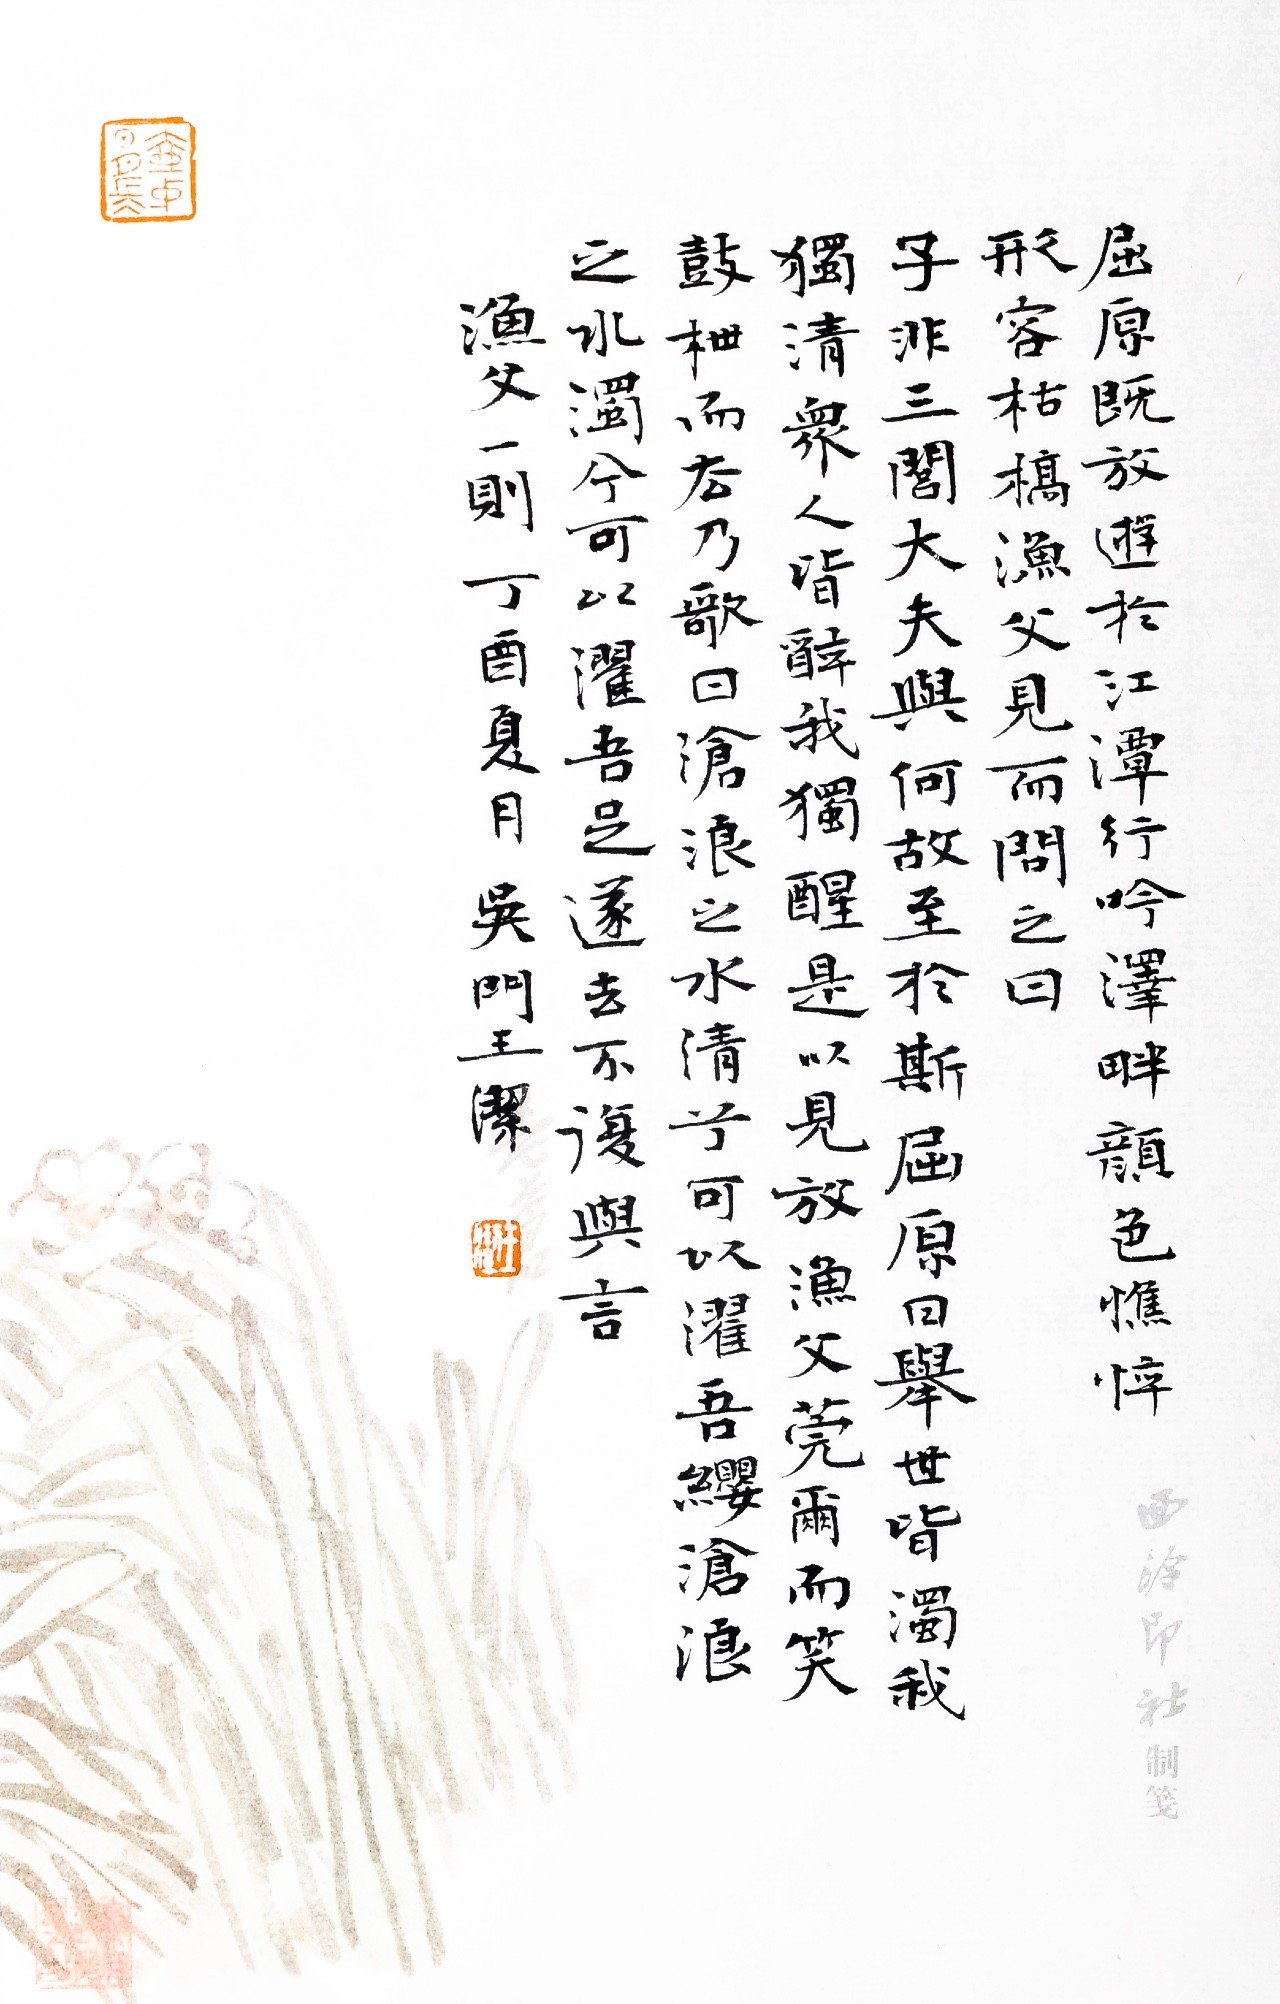 屈原既放遊於江潭行吟澤畔顔色憔悴
形容枯槁漁父見而問之曰
子非三閭大夫與何故至於斯屈原曰舉世皆濁我
獨清衆人皆醉我獨醒是以見放漁父莞爾而笑
鼓枻而去乃歌曰滄浪之水清兮可以濯吾纓滄浪
之水濁兮可以濯吾足遂去不復與言
漁父一則丁酉夏月吳門王潔
西泠印社制箋